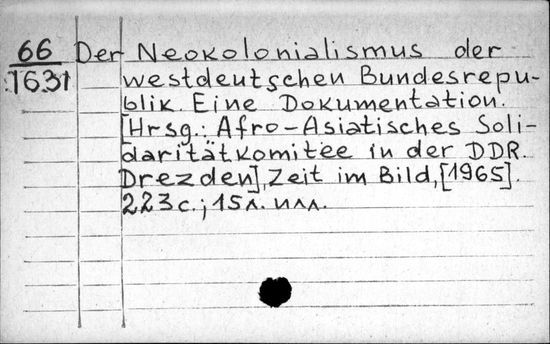 66 Der Neokolonialismus der
1631 westdeutschen Bundesrepu-
blik. Eine Dokumentation.
[Hrsg.: Afro-Asiatisches Soli-
daritätkomitee in der DDR.
Drezden], Zeit im Bild, [1965].
223 с.; 15 л. илл.